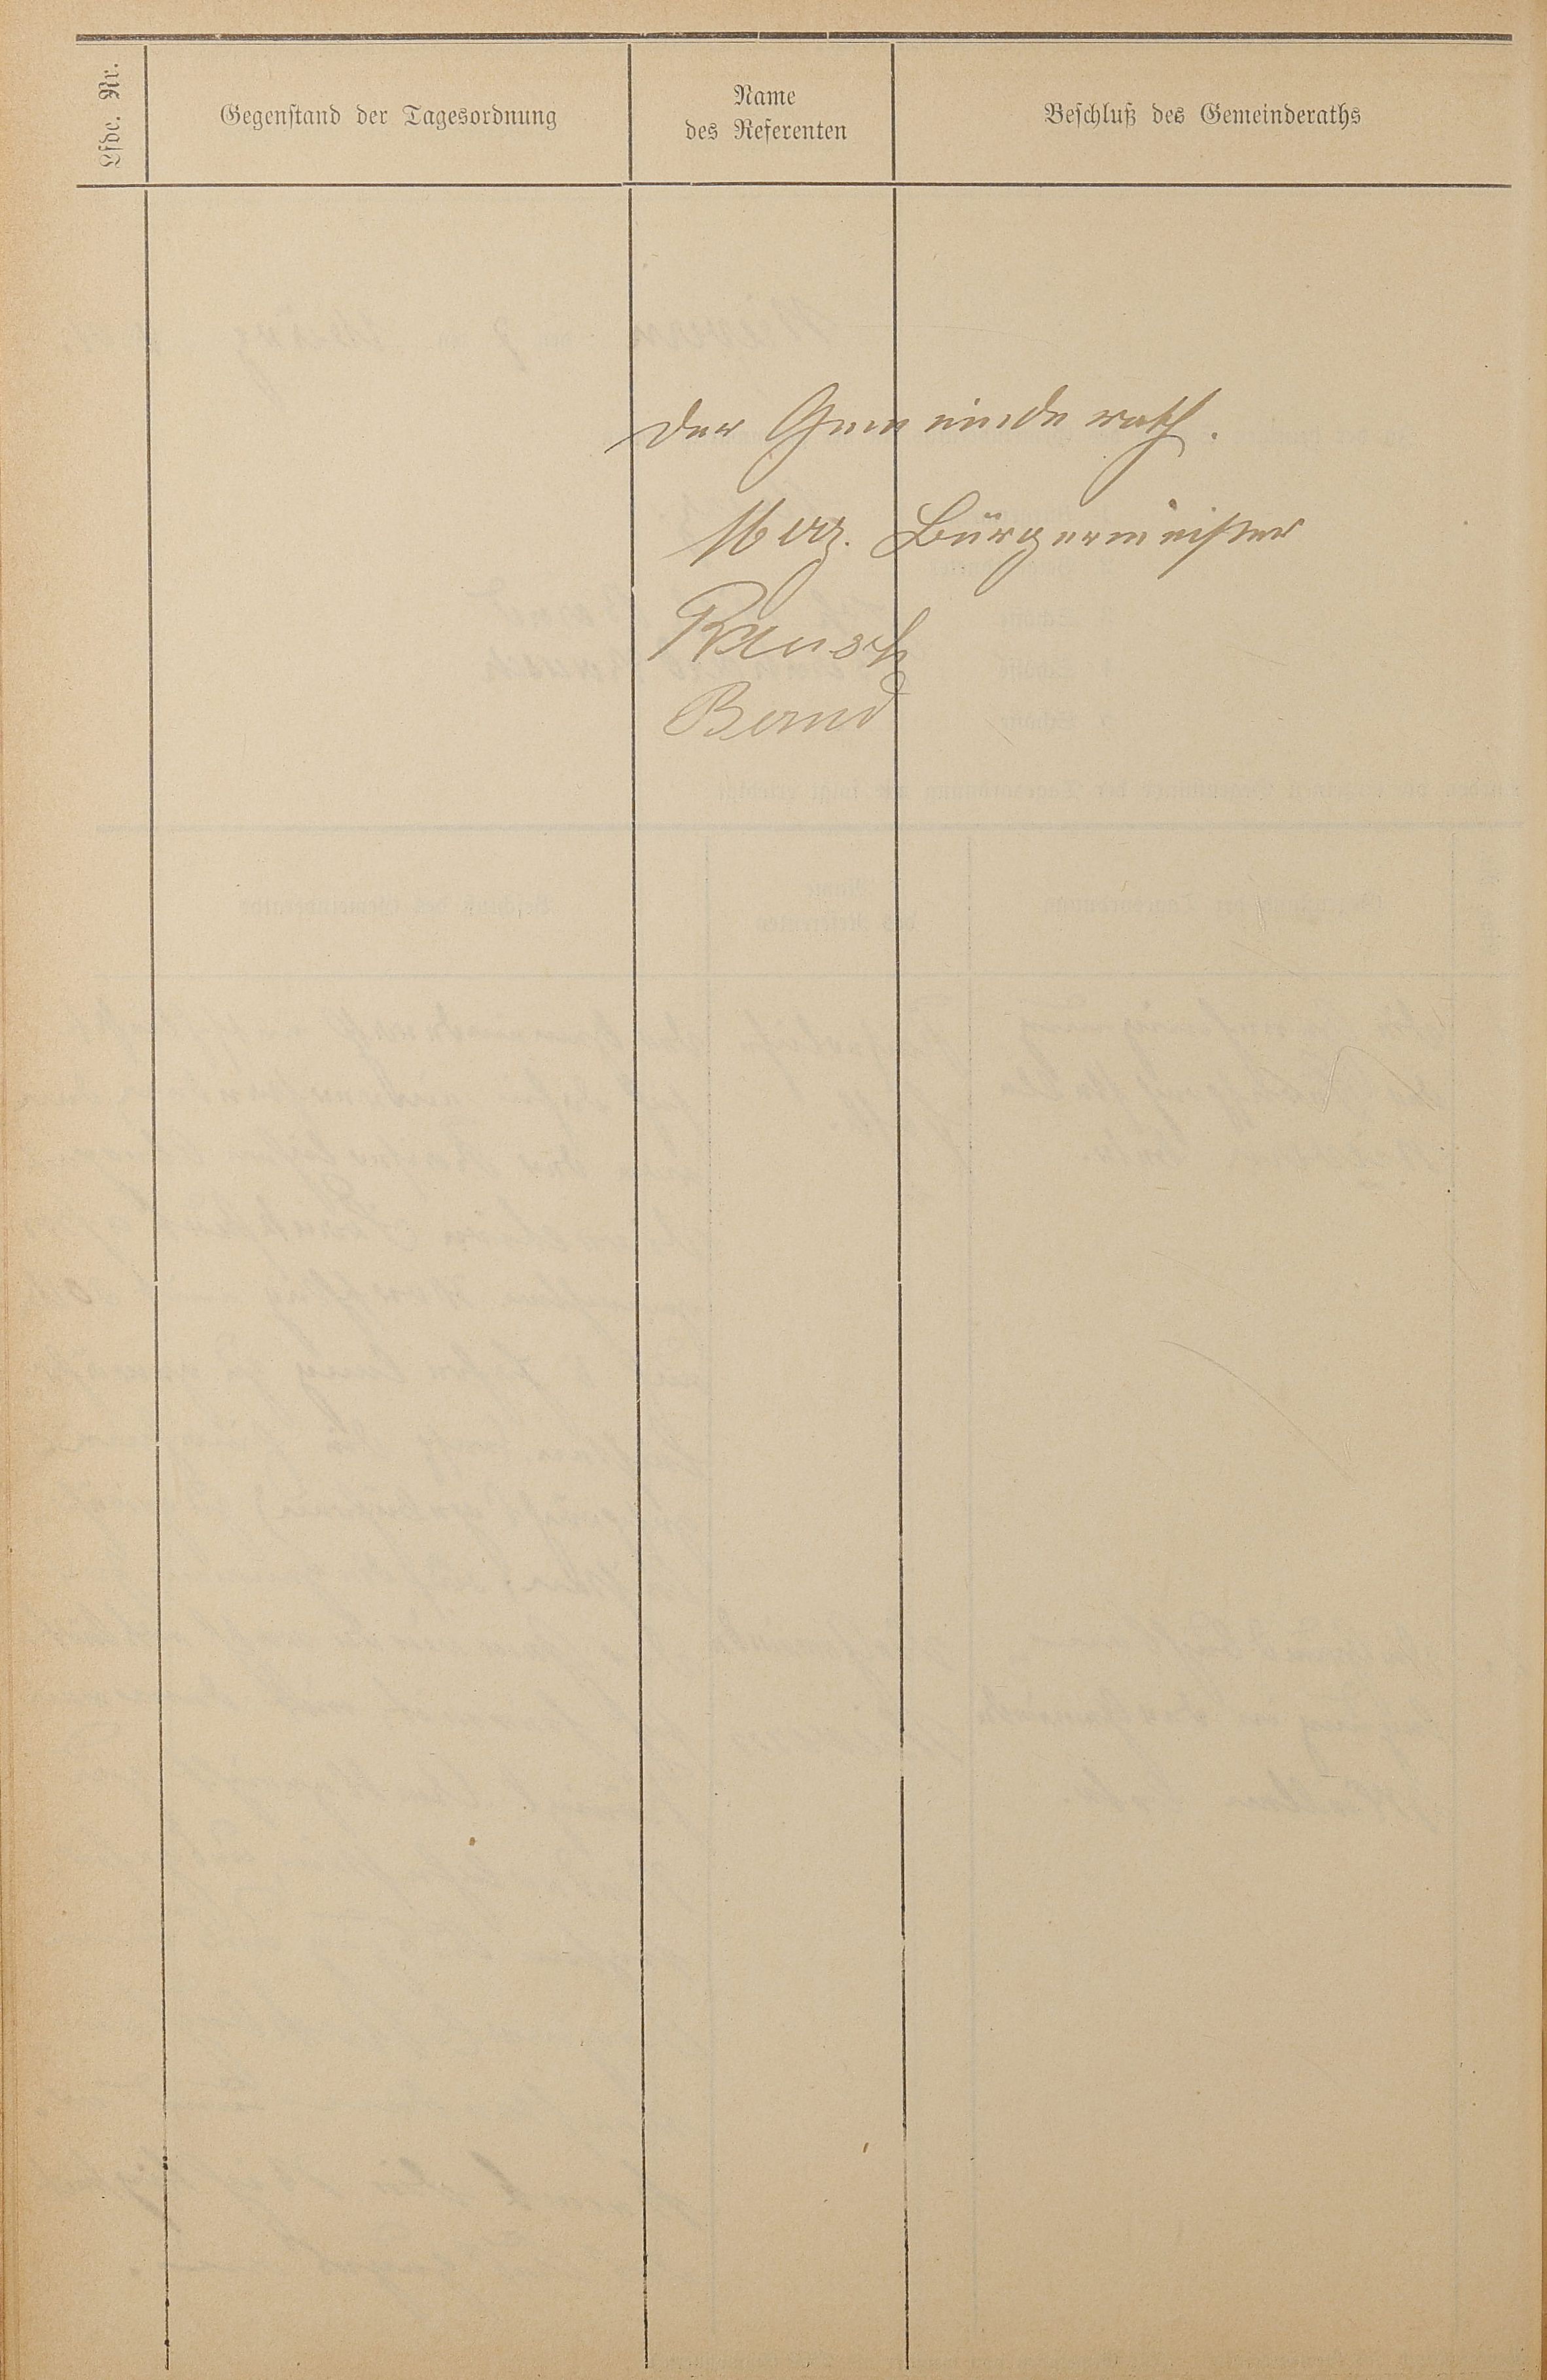 Lfde. Nr.
Gegenstand der Tagesordnung
Name
des Referenten
Beschluß des Gemeinderaths
Der Gemeinderath.
Bürgermeister
Rausch
Bernd